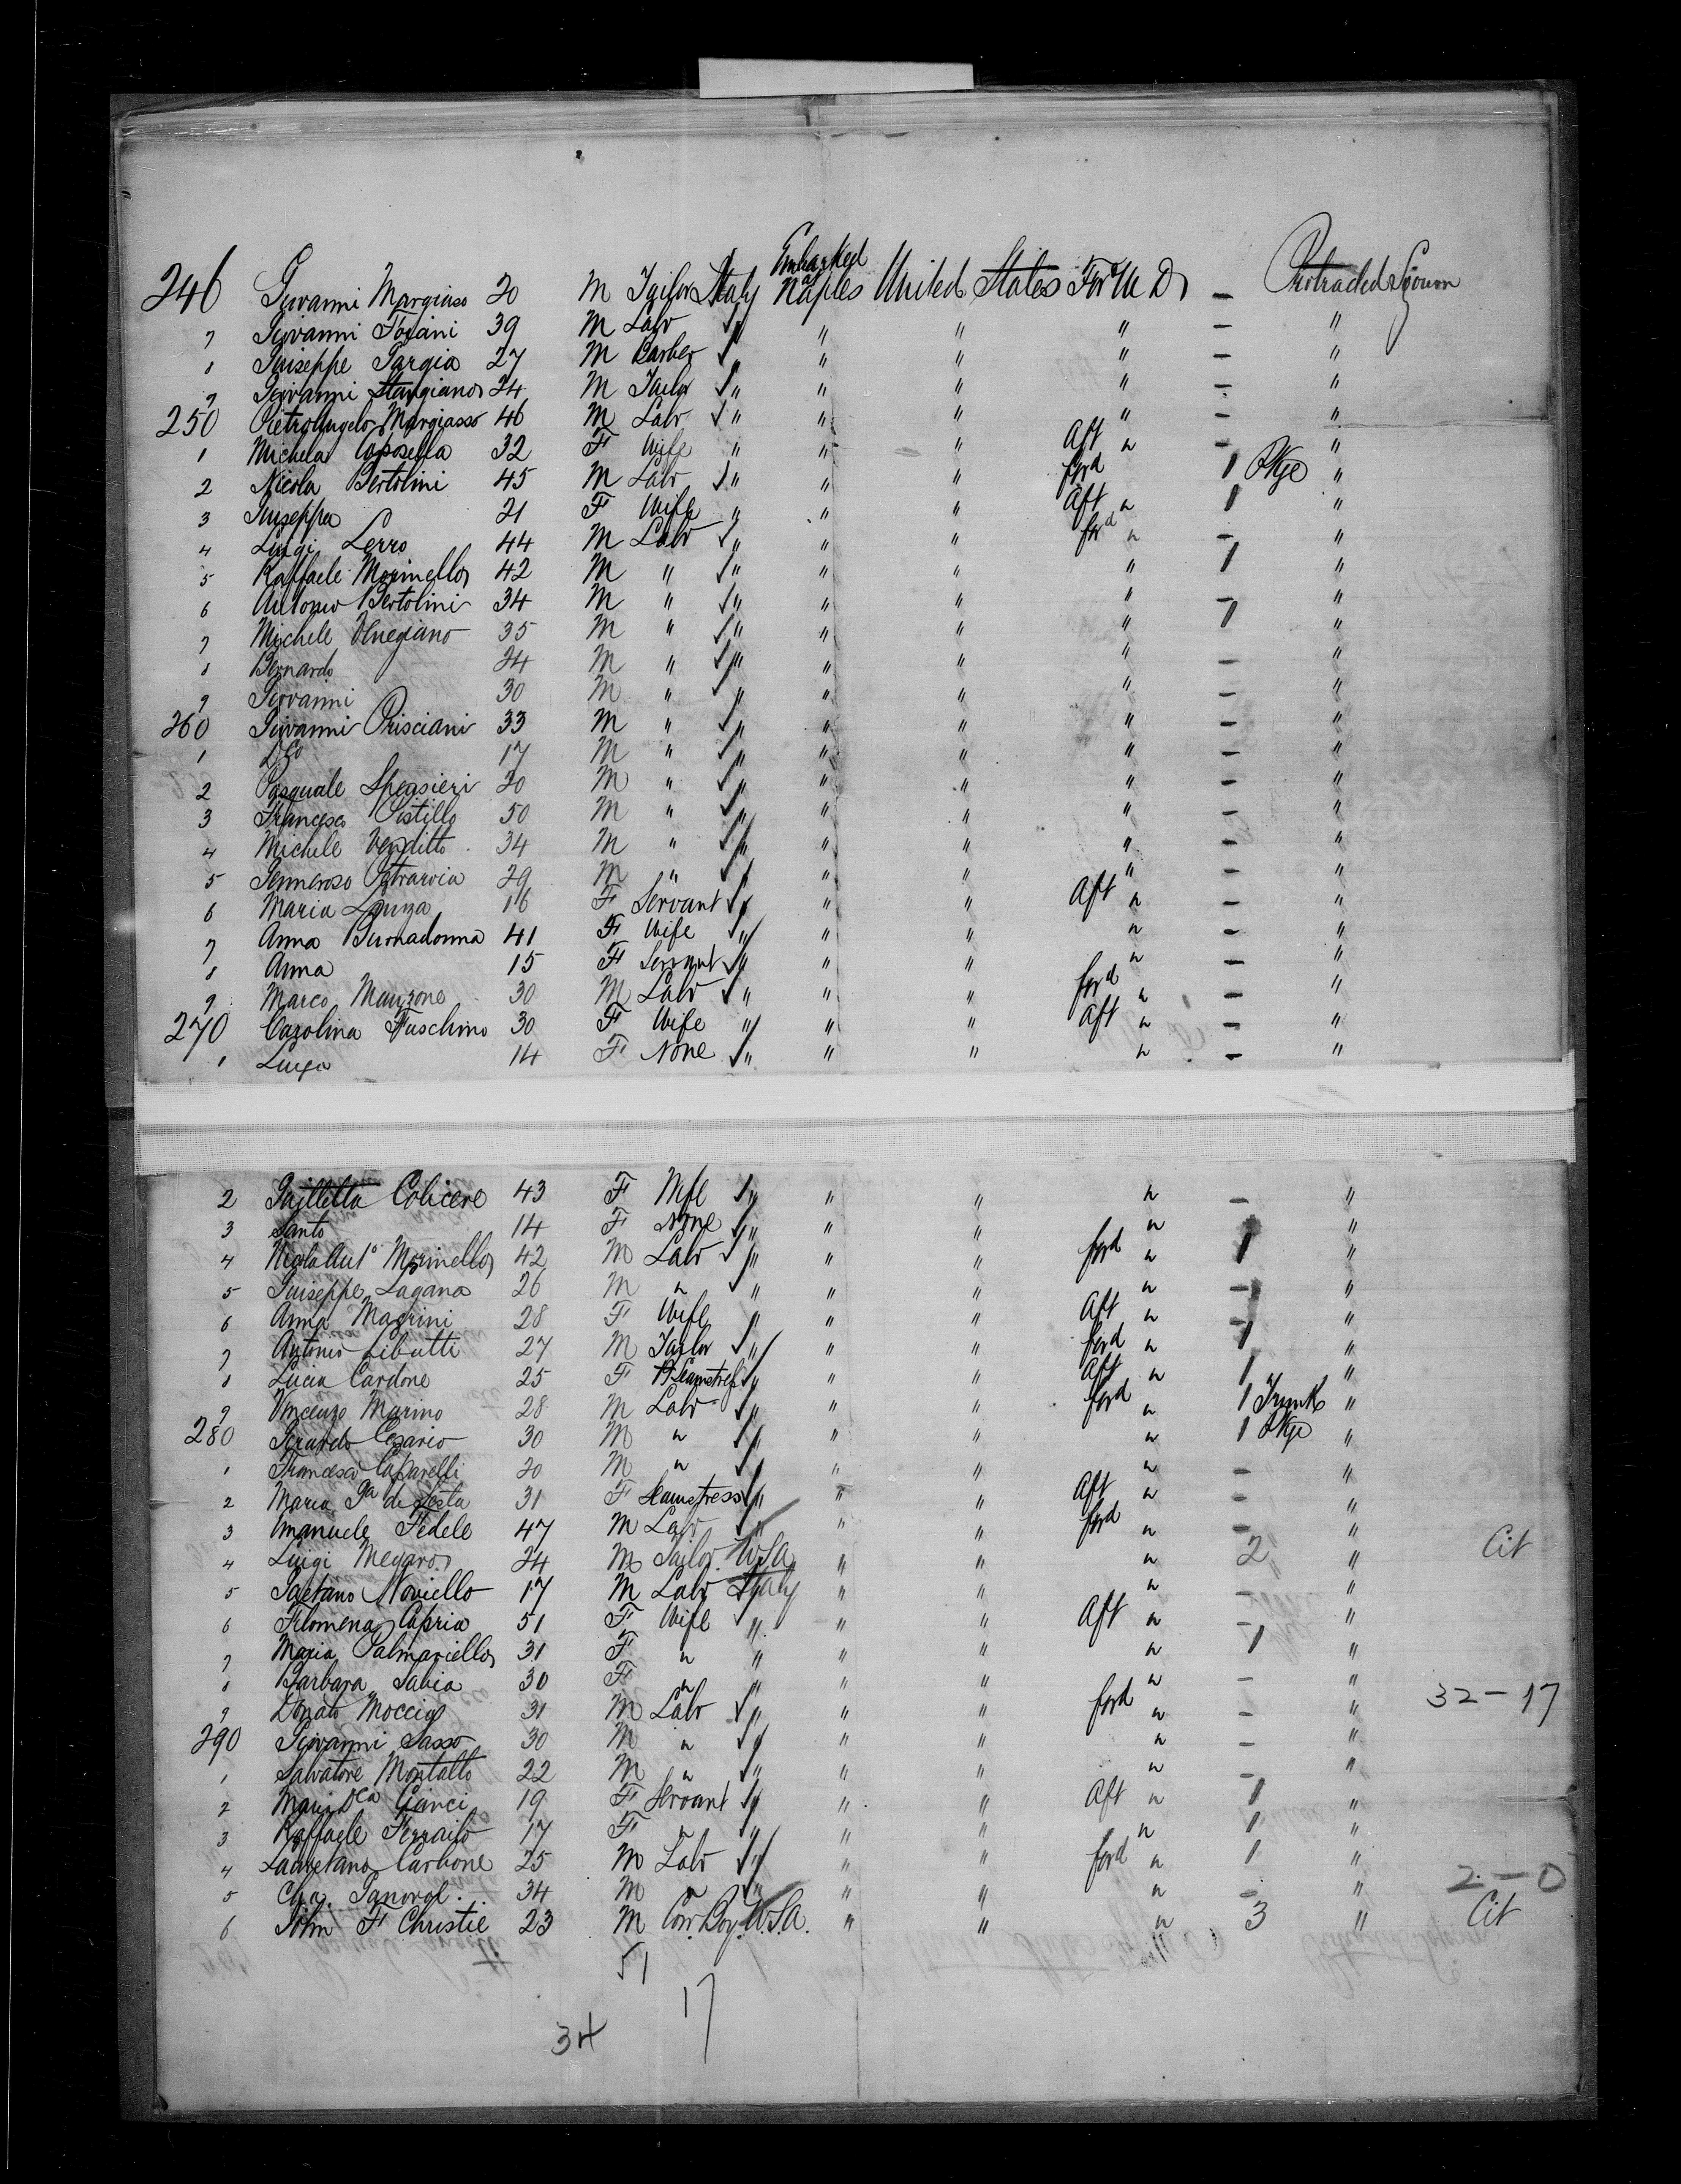 246 Giovanni Margiaso 20 M Tailor Italy Embarked at Naples United States Ford U D – Protracted Sojourn
7 Giovanni Foziani 39 M Labr " " " " – "
8 Guiseppe Gargia 27 M Barber " " " " – "
9 Giovanni Stangiano 24 M Tailor " " " " – "
250 Pietrangelo Margiasso 46 M Labr " " " " – "
1 Michela Caposella 32 F Wife " " " Aft " – "
2 Nicola Bertolini 45 M Labr " " " ford 1 Pkge "
3 Guiseppa 21 F Wife " " " Aft " 1 "
4 Luigi Lerro 44 M Labr " " " ford " – "
5 Raffaele Morinello 42 M " " " " " 1 "
6 Antonio Bertolini 34 M " " " " " – "
7 Michele 35 M " " " " " 1 "
8 Bernardo 24 M " " " " " – "
9 Giovanni 30 M " " " " " – "
260 Giovanni Prisciani 33 M " " " " " – "
1 Do 17 M " " " " " – "
2 Pasquale Speasieri 20 M " " " " " – "
3 Francesco Pistillo 50 M " " " " " – "
4 Michele Venditto 34 M " " " " " – "
5 Genneroso Petraroia 29 M " " " " " – "
6 Maria Lauza 16 F Servant " " " Aft " – "
7 Anna Buonadonna 41 F Wife " " " " – "
8 Anna 15 F Servant " " " " – "
9 Marco Manzone 30 M Labr " " " ford " – "
270 Carolina Fuschino 30 F Wife " " " Aft " – "
1 Luiga 14 F None " " " " – "
2 Colicere 43 F Wife " " " " – "
3 Santo 14 F None " " " " "
4 Nicola Anto Morinello 42 M Labr " " " ford " 1 "
5 Guiseppe Lagana 26 M " " " " " – "
6 Anna Magrini 28 F Wife " " " Aft " – "
7 Antonio Libutti 27 M Taylor " " " ford " 1 "
8 Lucia Cardone 25 F Seamstress " " " Aft " 1 "
9 Vincenzo Marino 28 M Labr " " " ford " 1 Trunk "
280 Gerardo Cesario 30 M " " " " " 1 Pkge "
1 Francesco Caparelli 20 M " " " " " – "
2 Maria Ga di Sesta 31 F Seamstress " " " Aft " – "
3 Emanuele Fedele 47 M Labr " " " ford " – "
4 Luigi Megaro 24 M Sailor USA " " " 2 " Cit
5 Gaetano Noviello 17 M Labr Italy " " " – "
6 Filomena Capria 51 F Wife " " " Aft " – "
7 Maria Palmariello 31 F " " " " " 1 "
8 Barbara Sabia 30 F " " " " " – "
9 Donato Moccia 31 M Labr " " " ford " – " 32–17
290 Giovanni Sasso 30 M " " " " " – "
1 Salvatore Montalto 22 M " " " " " – "
2 Maria Dca Cianci 19 F Servant " " " Aft " 1 "
3 Raffaele Ferraito 17 F " " " " " 1 "
4 Carbone 25 M Labr " " " ford " 1 "
5 Chas. 34 M " " " " – " 2–0
6 John F Christie 23 M Cow Boy U.S.A. " " " 3 " Cit
51
17
34